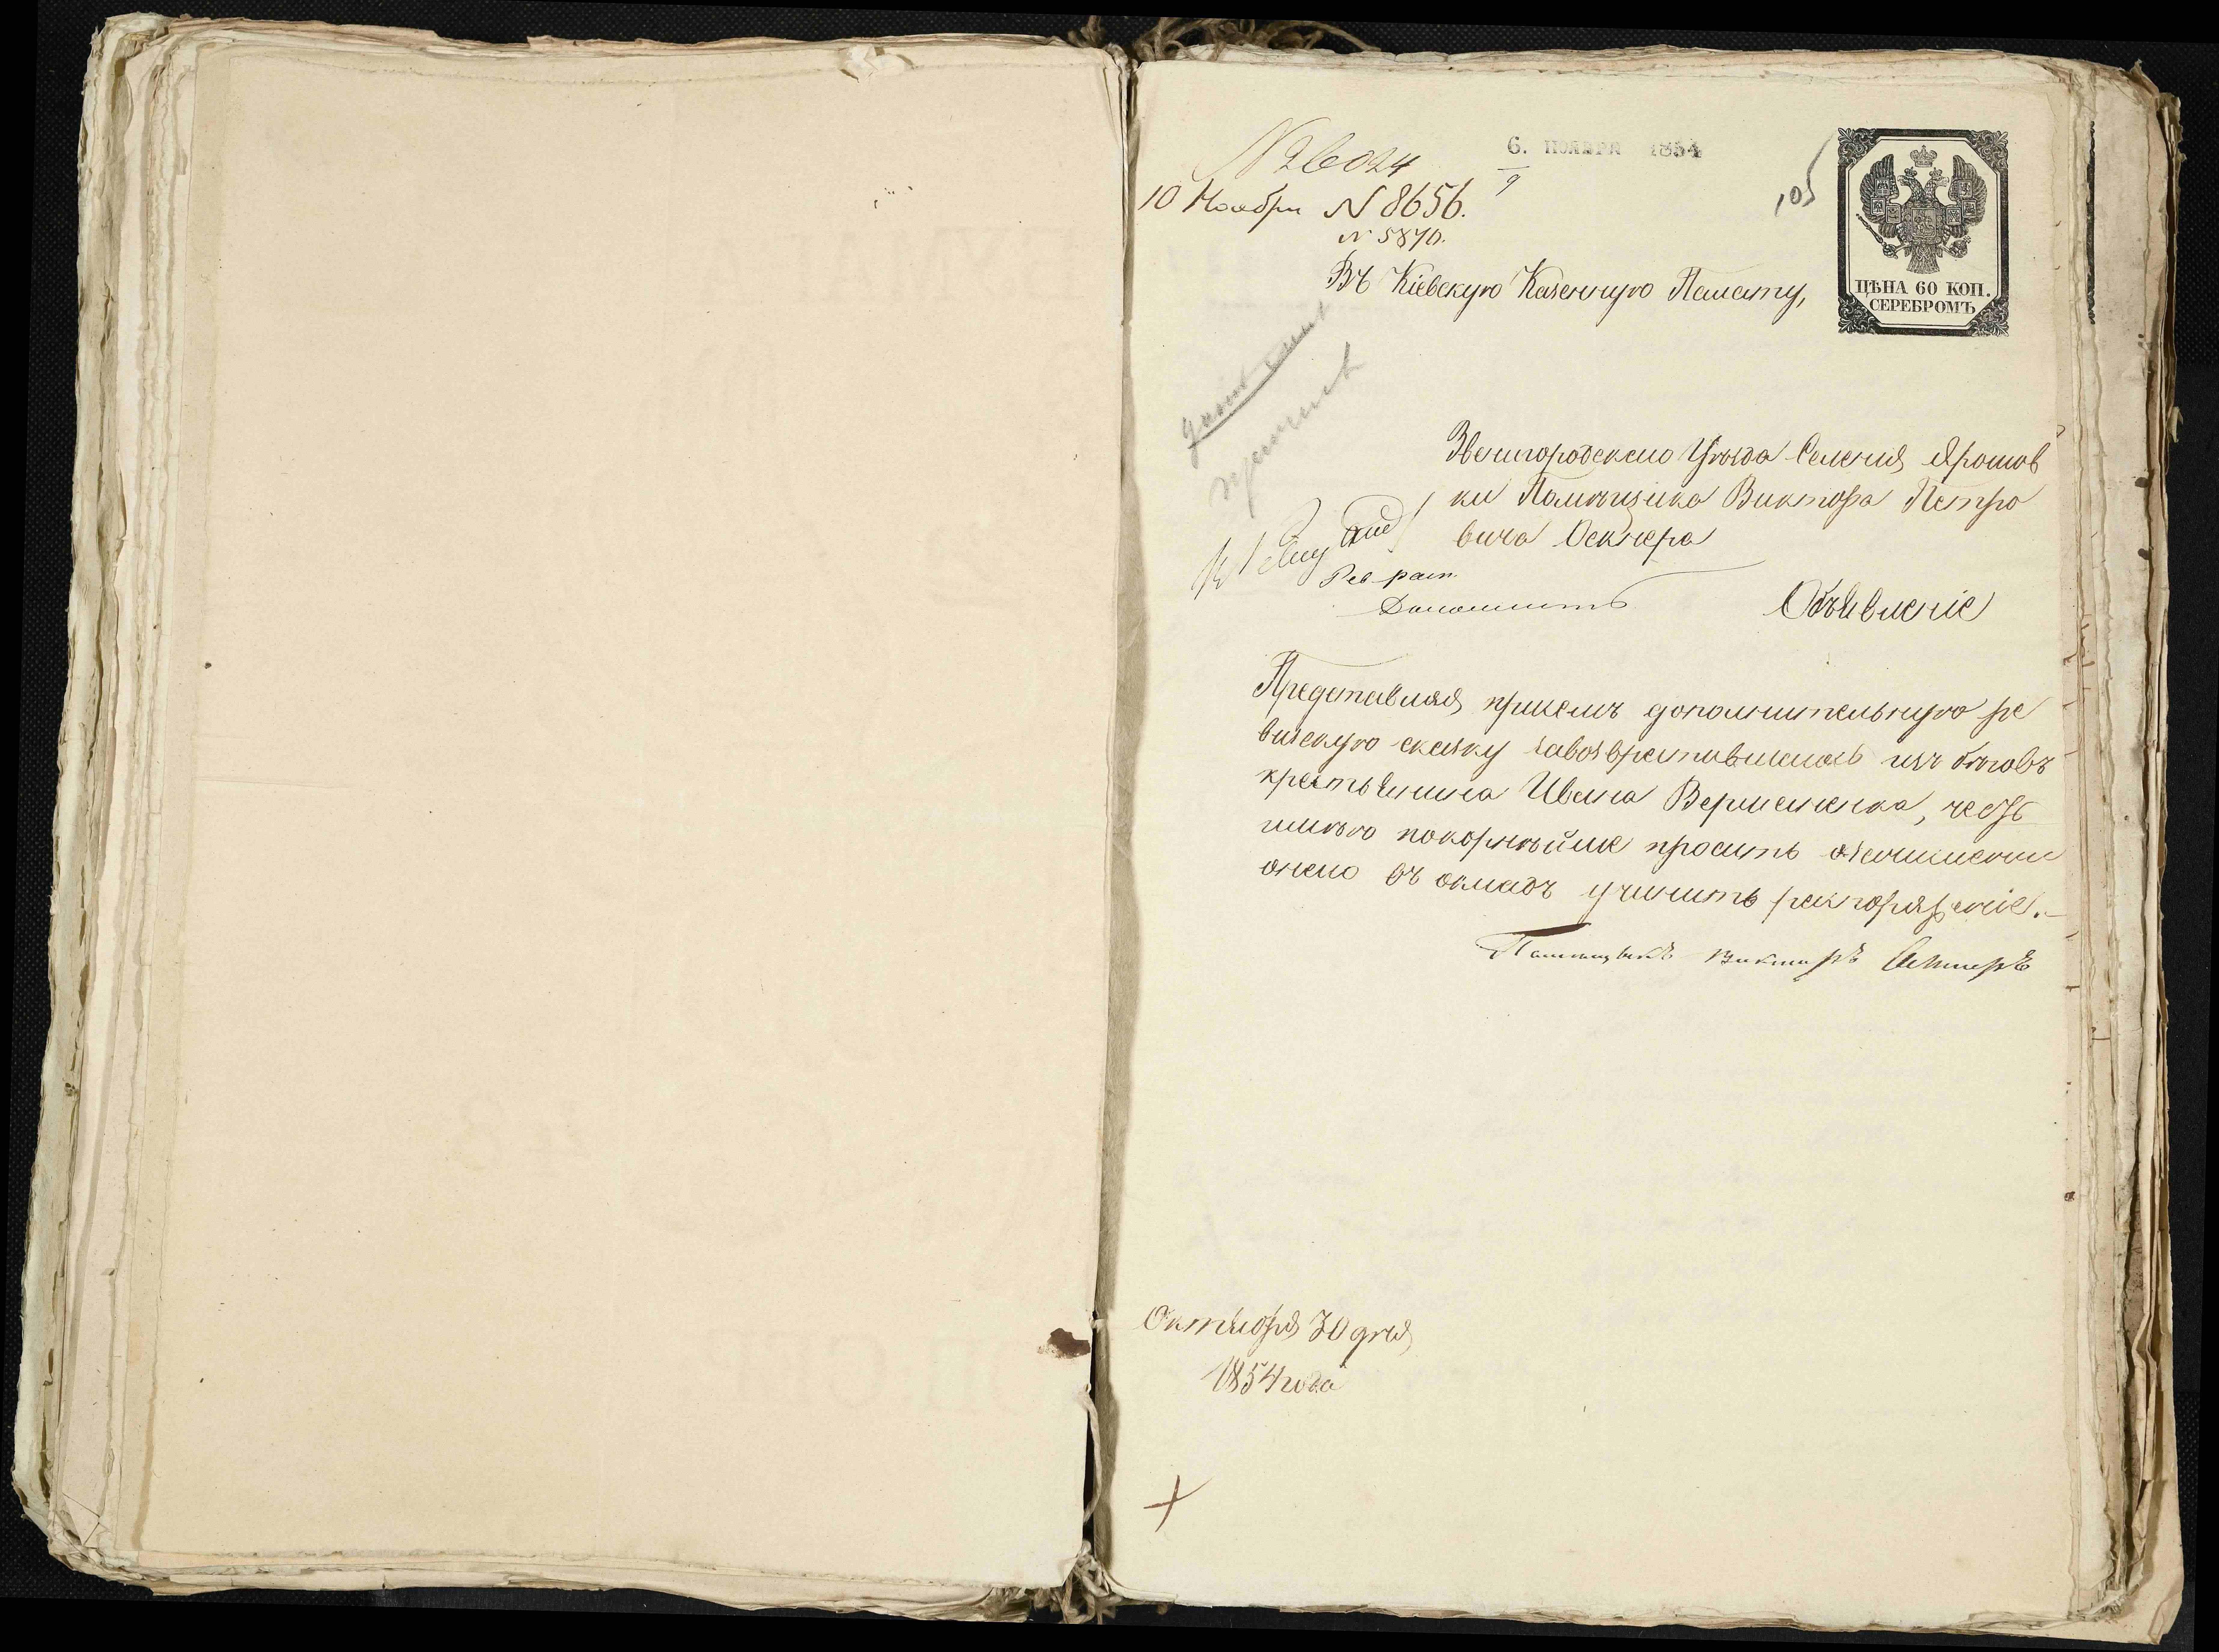 № 26024
6. НОЯБРЯ 1854
9
105
10 Ноября № 8656.
№ 5870.
ЦѢНА 60 КОП.
СЕРЕБРОМЪ
Въ Кіевскую Казенную Палату,
Звенигородскаго Уѣзда Селенія Ярошов
ки Помѣщика Виктора Петро
вича
Рев.
Доложить
Объявленіе
Представляя присемъ дополнительную ре
визскую сказку завозвратившагось изъ бѣговъ
крестьянина Ивана честь
имѣю покорнѣйше просить озачисленіи
онаго въ окладъ учинить распоряженіе.
Помѣщикъ Викторъ
Октября 30 дня
1854 года